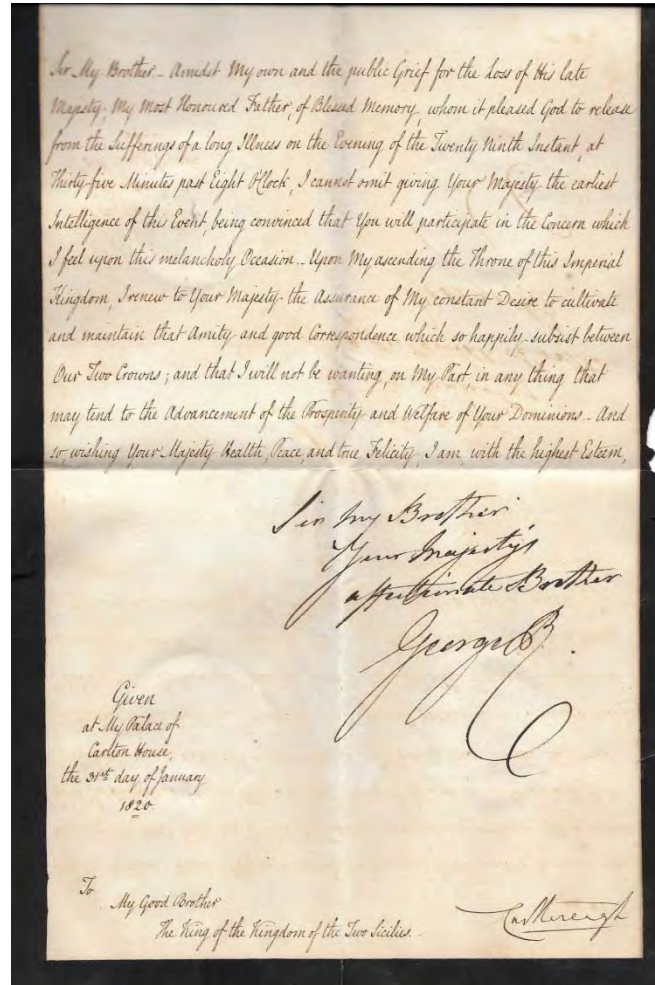 Sir My Brother_ Amidst My own and the public Grief for the Loss of His late
Majesty, My most Honoured Father, of Blessed Memory, whom it pleased God to release
from the Sufferings of a long Illness on the Evening of the Twenty Ninth Instant, at
Thirty five Minutes past Eight O'Clock, I cannot omit giving Your Majesty the earliest
Intelligence of this Event, being convinced that You will participate in the Concern which
I feel upon this melancholy Occasion_ Upon My ascending the Throne of this Imperial
Kingdom, I renew to Your Majesty the Assurance of My constant Desire to cultivate
and maintain that Amity and good Correspondence which so happily subsist between
Our Two Crowns; and that I will not be wanting, on My Part, in any thing that
may tend to the Advancement of the Prosperity and Welfare of Your Dominions_ And
so, wishing Your Majesty Health, Peace, and true Felicity, I am, with the highest Esteem,
Sir my Brother
Your Majesty's
affectionate Brother
George R.
Given
at My Palace of
Carlton House,
the 31st day of January
1820
To
My Good Brother
The King of the Kingdom of the Two Sicilies_
Castlereagh